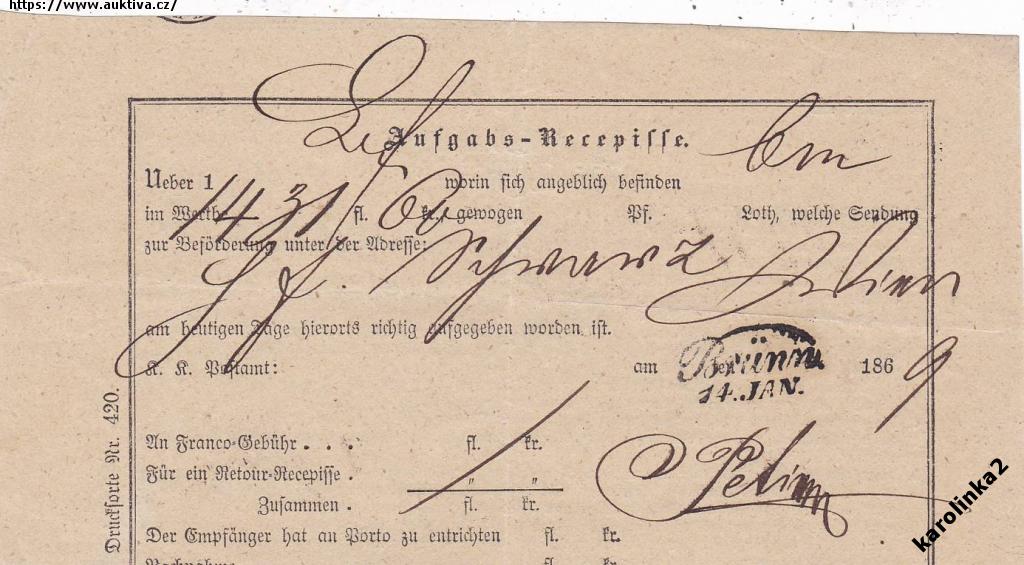 https://www.auktiva.cz/
Aufgabs-Recepisse.
Ueber 1 worin sich angeblich befinden
im Werthe 1431 fl. 60 kr., gewogen Pf. Loth, welche Sendung
zur Beförderung unter der Adresse:
Schwarz Wien
am heutigen Tage hierorts richtig aufgegeben worden ist.
K. K. Postamt: am 1869
Brünn
14. JAN.
An Franco-Gebühr . . . fl. kr.
Für ein Retour-Recepisse . " "
Zusammen . fl. kr.
Der Empfänger hat an Porto zu entrichten fl. kr.
Nachnahme fl. kr.
Drucksorte Nr. 420.
karolinka2